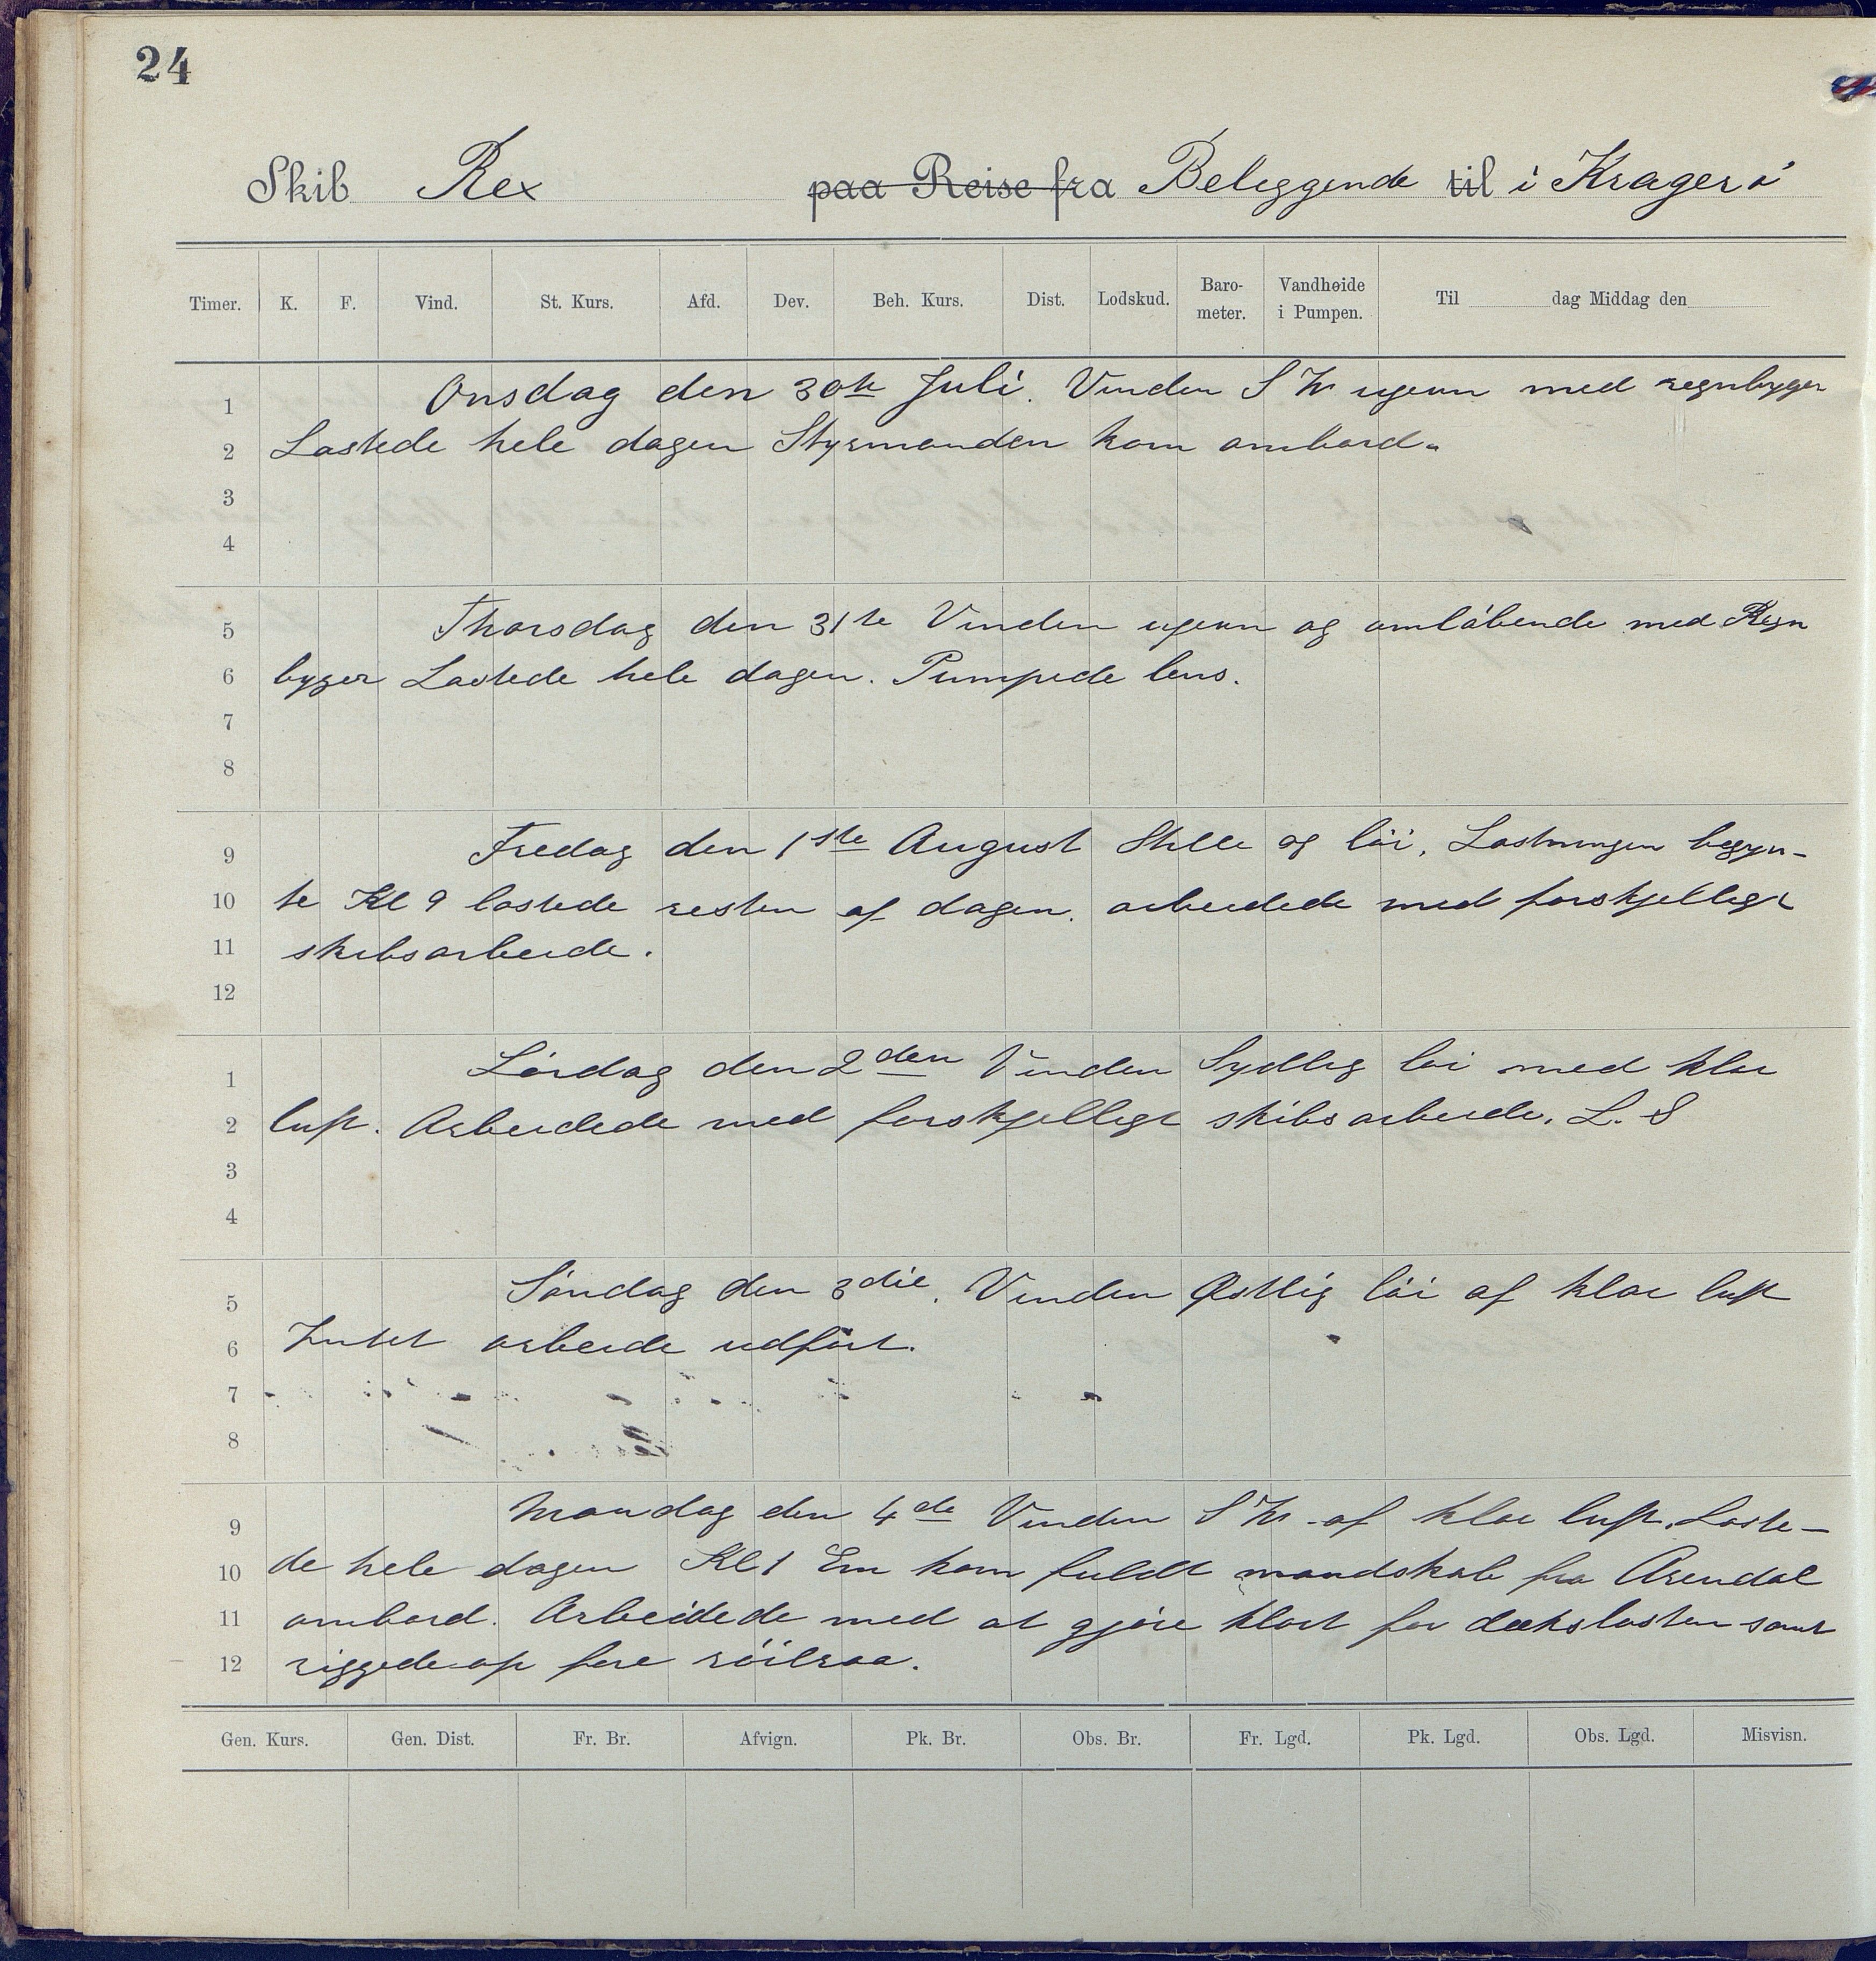 24
Skib Rex paa Reise fra Beliggende til i Kragerö
Timer. K. F. Vind. St. Kurs. Afd. Dev. Beh. Kurs. Dist. Lodskud. Baro-meter. Vandhøide i Pumpen. Til dag Middag den
1 Onsdag den 30te Juli. Vinden SW ujevn med regnbyger
2 Lastede hele dagen Styrmanden kom ombord.
3
4
5 Thorsdag den 31te Vinden ujevn og omlöbende med Regn
6 byger Lastede hele dagen. Pumpede lens.
7
8
9 Fredag den 1ste August Stille og löi, Lastningen begyn-
10 te Kl 9 lastede resten af dagen. arbeidede med forskjelligt
11 skibsarbeide.
12
1 Lördag den 2den Vinden Sydlig löi med klar
2 luft. Arbeidede med forskjelligt skibsarbeide. L. S
3
4
5 Söndag den 3die. Vinden Østlig löi af klar luft
6 Intet arbeide udfört.
7
8
9 Mandag den 4de Vinden SW af klar luft. Laste-
10 de hele dagen Kl 1 Em kom fuldt mandskab fra Arendal
11 ombord. Arbeidede med at gjöre klart for dækslasten samt
12 riggede op fore röilraa.
Gen. Kurs. Gen. Dist. Fr. Br. Afvign. Pk. Br. Obs. Br. Fr. Lgd. Pk. Lgd. Obs. Lgd. Misvisn.